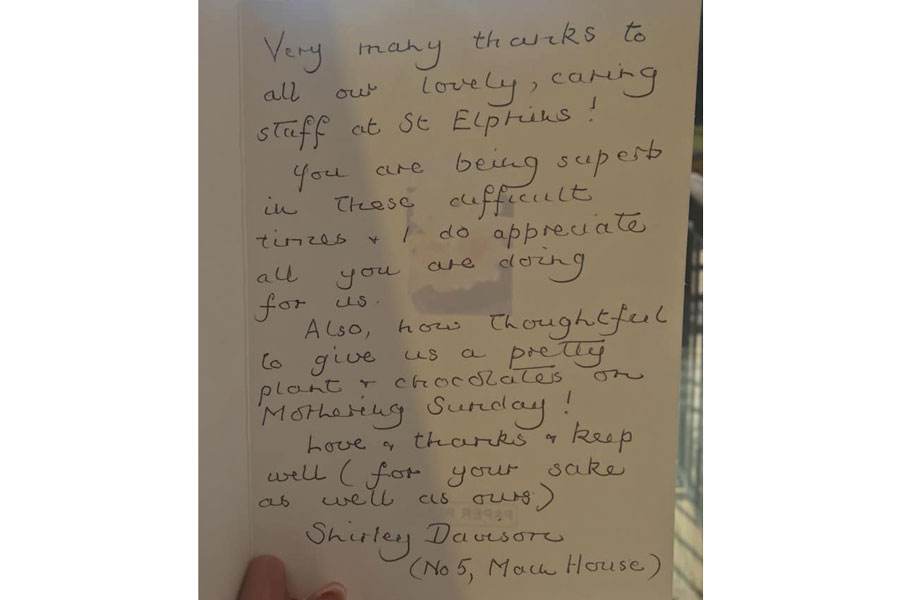 Very many thanks to
all our lovely, caring
staff at St Elphins!
You are being superb
in these difficult
times & I do appreciate
all you are doing
for us.
Also, how thoughtful
to give us a pretty
plant & chocolates on
Mothering Sunday!
Love & thanks & keep
well (for your sake
as well as ours)
Shirley Davison
(No 5, House)